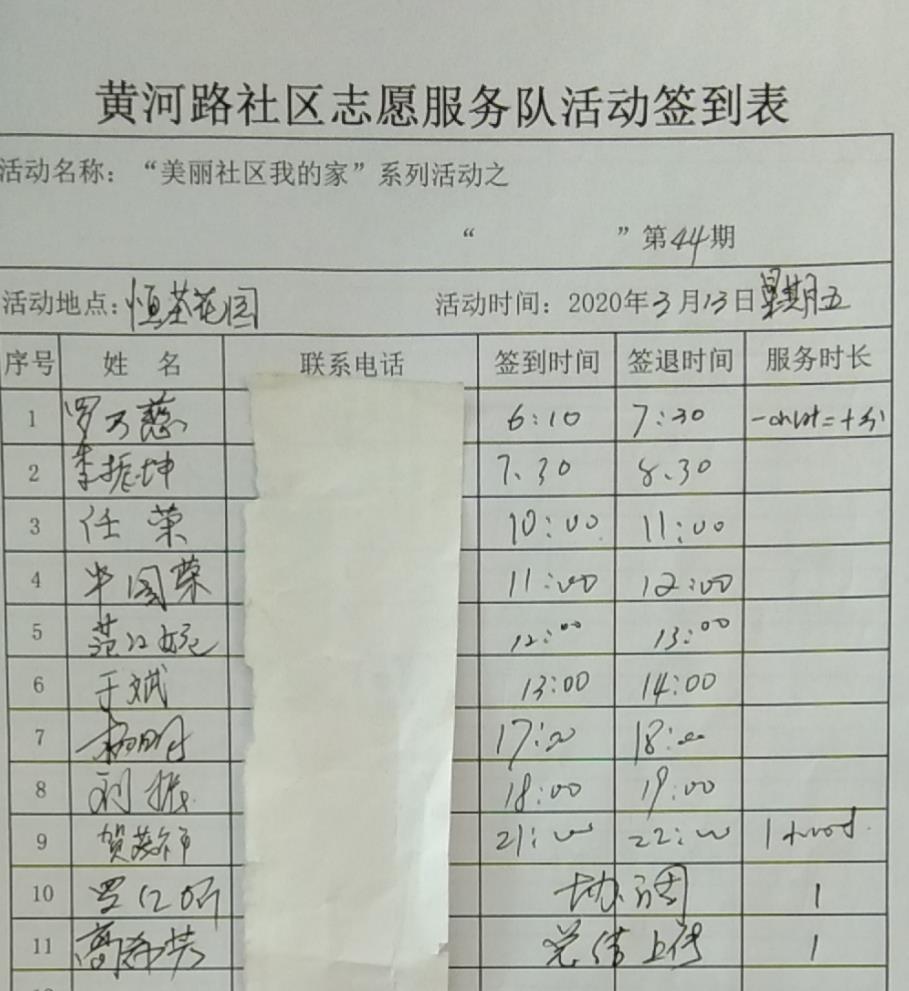 黄河路社区志愿服务队活动签到表
活动名称：“美丽社区我的家”系列活动之
“ ”第44期
活动地点：恒基花园 活动时间：2020年3月13日星期五
序号 姓名 联系电话 签到时间 签退时间 服务时长
1 罗万慈 6:10 7:30
2 李振坤 7.30 8.30
3 任荣 10:00 11:00
4 牛国荣 11:00 12:00
5 范江婉 12:00 13:00
6 于斌 13:00 14:00
7 杨明 17:00 18:00
8 刘振 18:00 19:00
9 贺 21:00 22:00 1
10 协调 1
11 高 总结上传 1